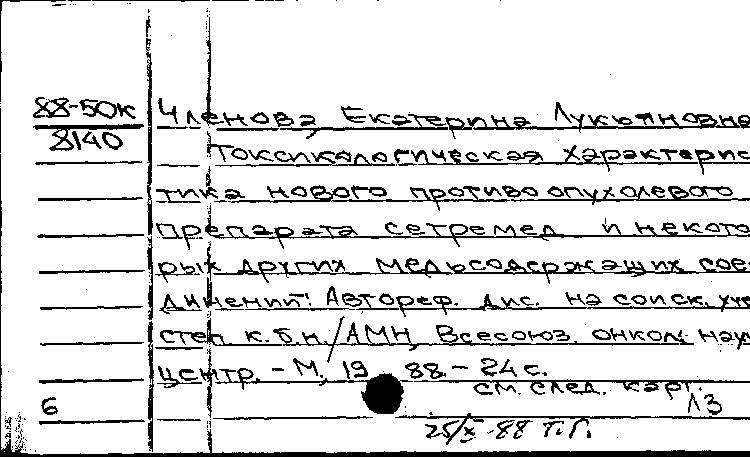 88-50к Членова Екатерина Лукьяновна
8140
Токсикологическая характерис
тика нового противоопухолевого
препарата сетремед и некото
рых других медьсодержащих сое
динений: Автореф. дис. на соиск. уче
степ к.б.н./АМН, Всесоюз. онкол. науч
центр. - М, 19 88. - 24 с.
см. след. карт.
6 13
25/X-88 Т.Г.